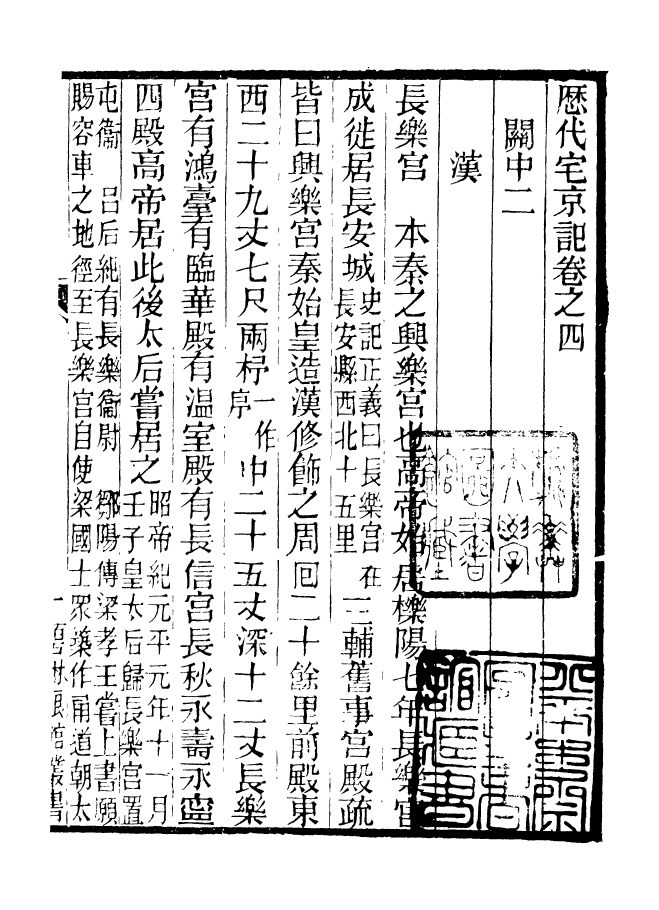 歴代宅京記卷之四
關中二
漢
長樂宮　本秦之興樂宮也高帝始居櫟陽七年長樂宮
成徙居長安城史記正義曰長樂宮在長安縣西北十五里三輔舊事宮殿疏
皆曰興樂宮秦始皇造漢修飾之周回二十餘里前殿東
西二十九丈七尺兩杼一作序中二十五丈深十二丈長樂
宮有鴻臺有臨華殿有温室殿有長信宮長秋永壽永寧
四殿高帝居此後太后嘗居之昭帝紀元平元年十一月壬子皇太后歸長樂宮置
屯衞　呂后紀有長樂衞尉　鄒陽傳梁孝王嘗上書願
賜容車之地徑至長樂宮自使梁國士眾築作甬道朝太
一
館叢書